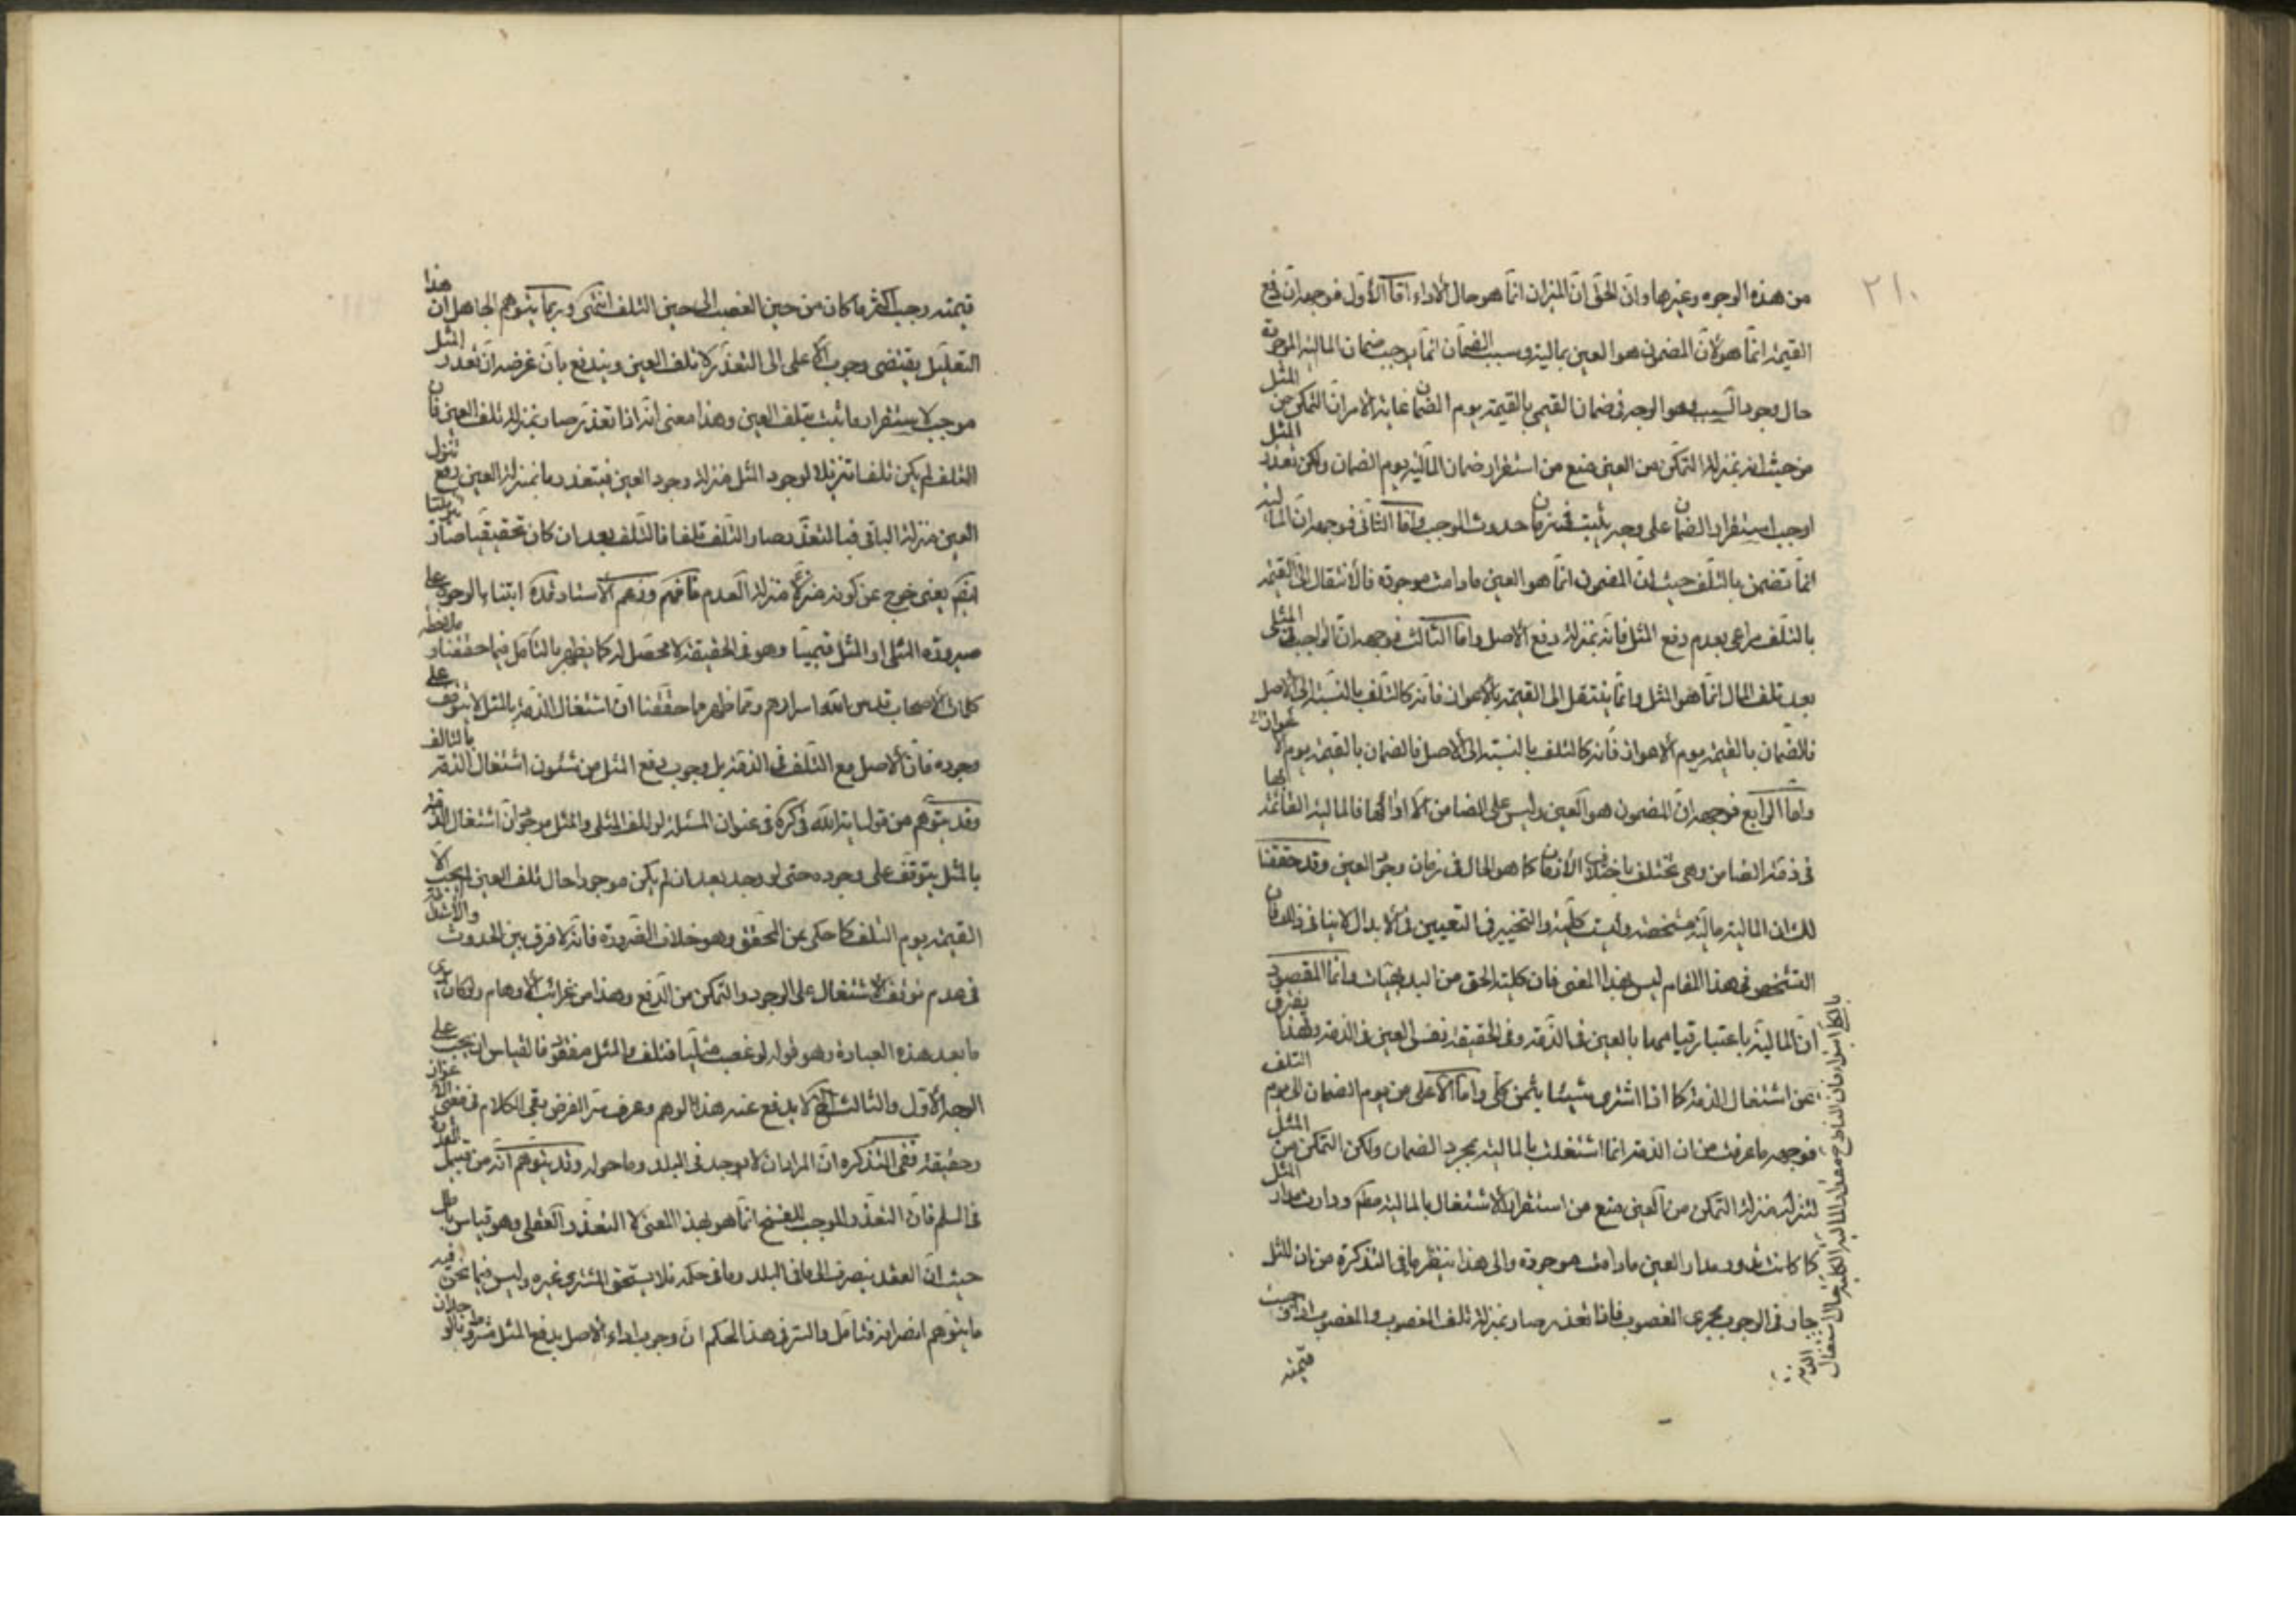 ٢١٠
من هذه الوجوه وغيرها وان الحق ان الميزان انما هو حال الاداء امّا الأول فوجهه ان دفع
القيمة انما هو لأن المضمون هو العين بماليته وسبب الضمان انما يوجب ضمان المالية الموجودة
حال وجود السبب وهو الوجه في ضمان القيمي بالقيمة يوم الضمان غاية الامر ان التمكن من المثل
من حيث انه بمنزلة التمكن من العين منع من استقرار ضمان المالية يوم الضمان ولكن تعذر المثل
اوجب استقرار الضمان على وجه يثبت في زمان حدوث الموجب وامّا الثاني فوجهه ان المالية
انما تضمن بالتلف حيث ان المضمون انما هو العين مادامت موجودة فالأنتقال الى القيمة
بالتلف مراعى بعدم دفع المثل فانه بمنزلة دفع الاصل وامّا الثالث فوجهه ان الواجب في المثلي
بعد تلف المال انما هو المثل وانما ينتقل الى القيمة بالاعواز فانه كالتلف بالنسبة الى الاصل
فالضمان بالقيمة يوم الاعواز فانه كالتلف بالنسبة الى الاصل فالضمان بالقيمة يوم الاعواز
وامّا الرابع فوجهه ان المضمون هو العين وليس على الضامن الا اداؤها فالمالية القائمة بها
في ذمة الضامن وهي تختلف باختلاف الأزمان كما هو الحال في زمان وجود العين وقد حققنا
لك ان المالية مالية مشخصة وليست كلية والتخيير في التعيين في الابدال لا ينافي ذلك فان
التشخص في هذا المقام ليس بهذا المعنى فان كلية الحق من البديهيات وانما المقصود
ان المالية باعتبار قيامها بالعين في الذمة وفي الحقيقة نفس العين في الذمة ولهذا يفترق
عن اشتغال الذمة كما اذا اشترى شيئا بثمن كلي وامّا الأعلى من يوم الضمان الى يوم التلف
فوجهه ما عرفت من ان الذمة انما اشتغلت بالمالية بمجرد الضمان ولكن التمكن من المثل
لتنزله منزلة التمكن من العين منع من استقرار الاشتغال بالمالية مطلقا ودارت مدار المثل
كما كانت تدور مدار العين مادامت موجودة والى هذا ينظر ما في التذكرة من ان للمثل
جار في الوجوب مجرى المغصوب فاذا تعذر صار بمنزلة تلف المغصوب والمغصوب اذا تلف وجبت
قيمته
قيمته وجب اكثر ما كان من حين الغصب الى حين التلف انتهى وربما يتوهم الجاهل ان هذا
التعليل يقتضي وجوب الأعلى الى التعذر لا تلف العين ويندفع بان غرضه ان تعذر المثل
موجب لاستقرار ما ثبت بتلف العين وهذا معنى انه اذا تعذر صار بمنزلة تلف العين فان
التلف لم يكن تلفا تنزيلا لوجود المثل منزلة وجود العين فبتعذر ما بمنزلة العين رفع تنزل
العين منزلة الباقي فبالتعذر صار التلف تلفا فالتلف بعد ان كان تحقيقيا صار تنزيليا
وصيرورة المثلي او المثل قيميا وهو في الحقيقة لا محصل له كما يظهر بالتأمل فيما حققنا و ملاحظة
كلمات الاصحاب قدس الله اسرارهم ومما ظهر ما حققنا ان اشتغال الذمة بالمثل لا يتوقف على
وجوده فان الاصل مع التلف في الذمة بل وجوب دفع المثل من شئون اشتغال الذمة بالتالف
وقد يتوهم من قول اية الله في كره في عنوان المسئلة لو تلف المثلي والمثل موجود ان اشتغال الذمة
بالمثل يتوقف على وجوده حتى لو وجد بعد ان لم يكن موجودا حال تلف العين لم يجب الا
القيمة يوم التلف كما حكى عن المحقق وهو خلاف الضرورة فانه لا فرق بين الحدوث
في عدم توقف الاشتغال على الوجود والتمكن من الدفع وهذا من غرائب الاوهام
ما بعد هذه العبارة وهو قوله لو غصب مثليا فتلف والمثل مفقود فالقياس ان يجب على
وحقيقته ففي التذكرة ان المراد ان لا يوجد في البلد وما حوله وقد يتوهم انه من قبيل
في السلم فان التعذر الموجب للفسخ انما هو بهذا المعنى لا التعذر العقلي وهو قياس
حيث ان العقد ينصرف الى ما في البلد وما في حكمه فلا يستحق المشتري غيره وليس فيما نحن فيه
ما يتوهم انصرافه فتأمل والسر في هذا الحكم ان وجوب اداء الاصل بدفع المثل